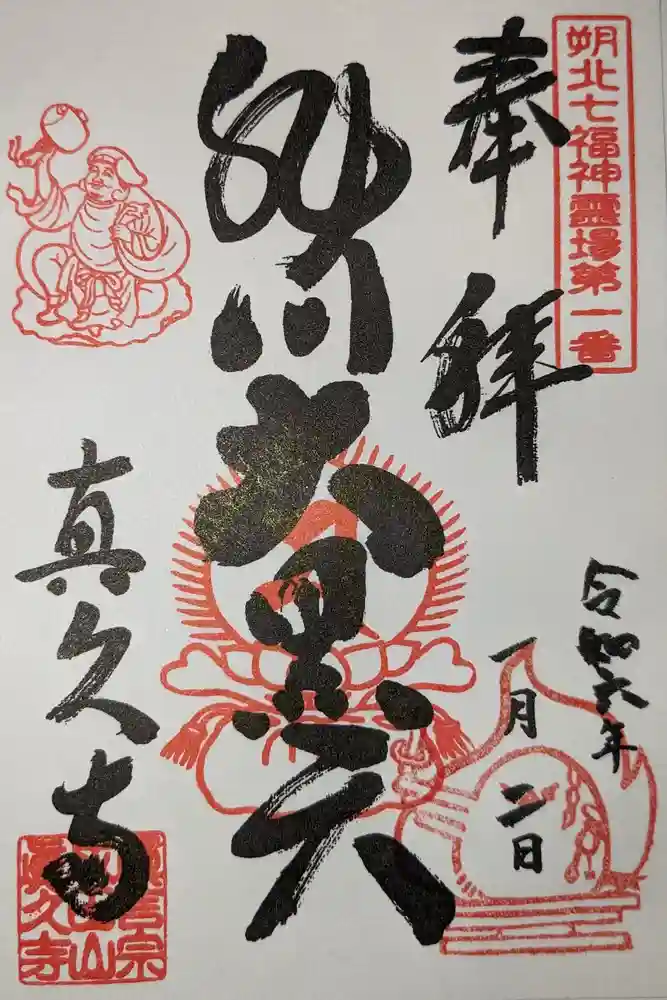 朔北七福神靈場第一番
奉拝
令和六年
一月二日
旭川大黒天
真久寺
真言宗
成田山
眞久寺